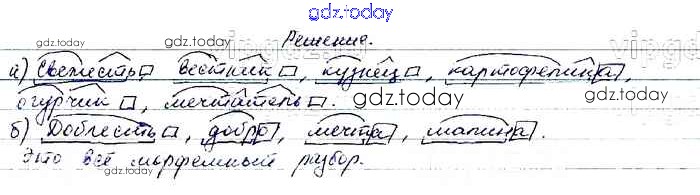 gdz.today
gdz.today
gdz.today Решение. vipgdz
а) Свежесть, вестник, кузнец, картофелина,
огурчик, мечтатель. gdz.today
б) Доблесть, добро, мечта, малина.
Это всё морфемный разбор.
gdz.today gdz.today